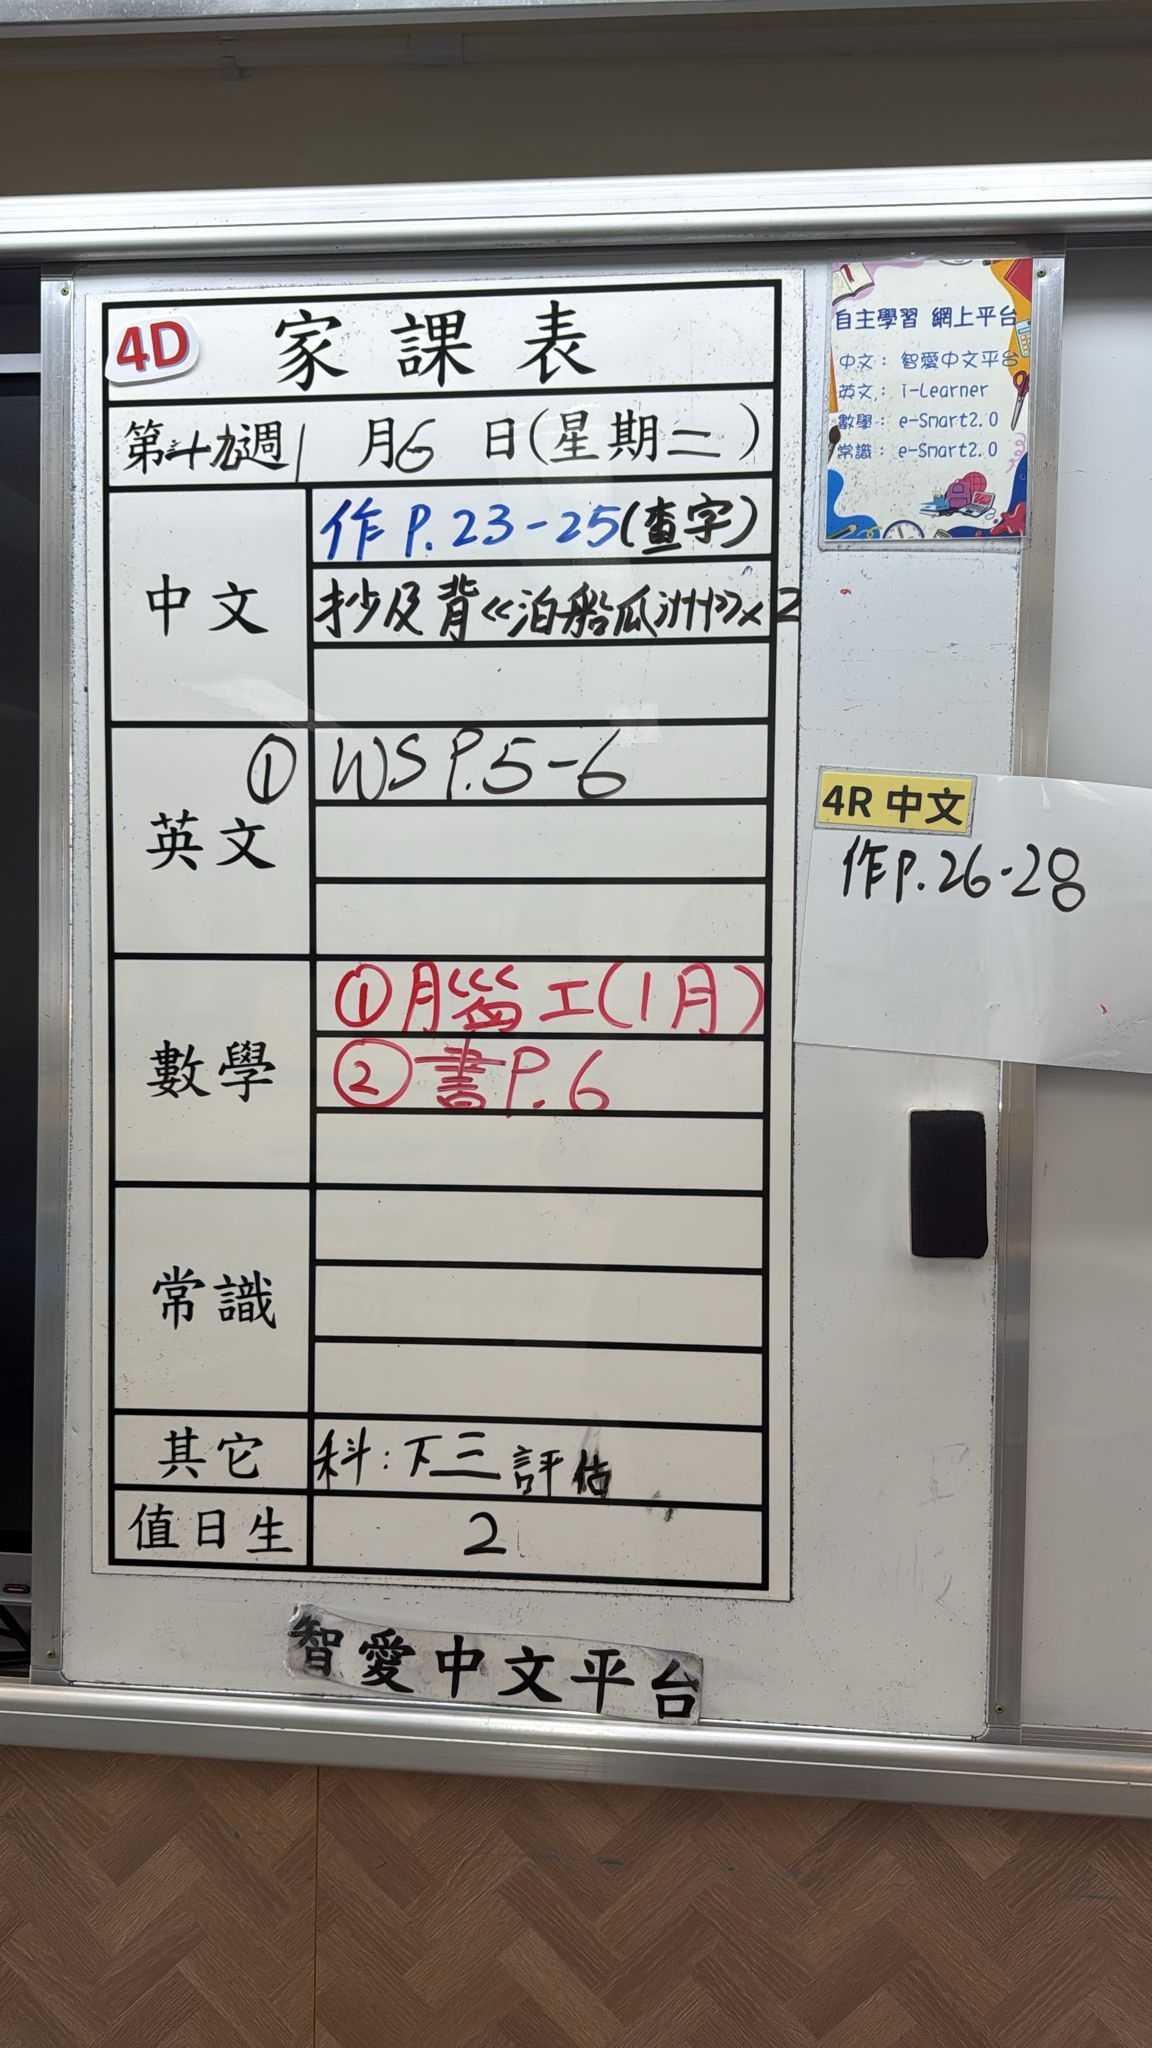 4D 家課表
第十九週 1月6日(星期二)
中文
作 P.23-25(查字)
抄及背《泊船瓜洲》x2
英文
① WS P.5-6
數學
工(1月)
② 書P.6
常識
其它
科:下三評估
值日生
2
智愛中文平台
自主學習 網上平台
中文: 智愛中文平台
英文: i-Learner
數學: e-Smart2.0
常識: e-Smart2.0
4R 中文
作P.26-28